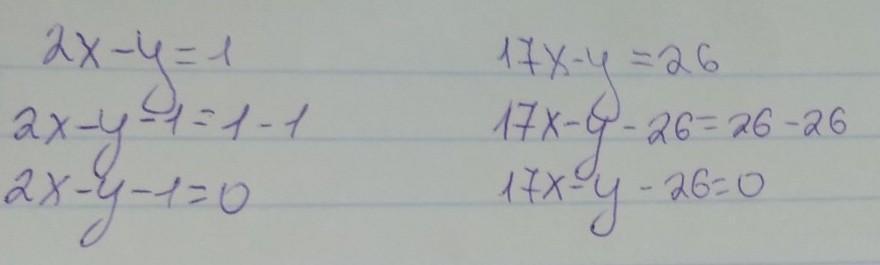 2x-y=1 17x-y=26
2x-y-1=1-1 17x-y-26=26-26
2x-y-1=0 17x-y-26=0